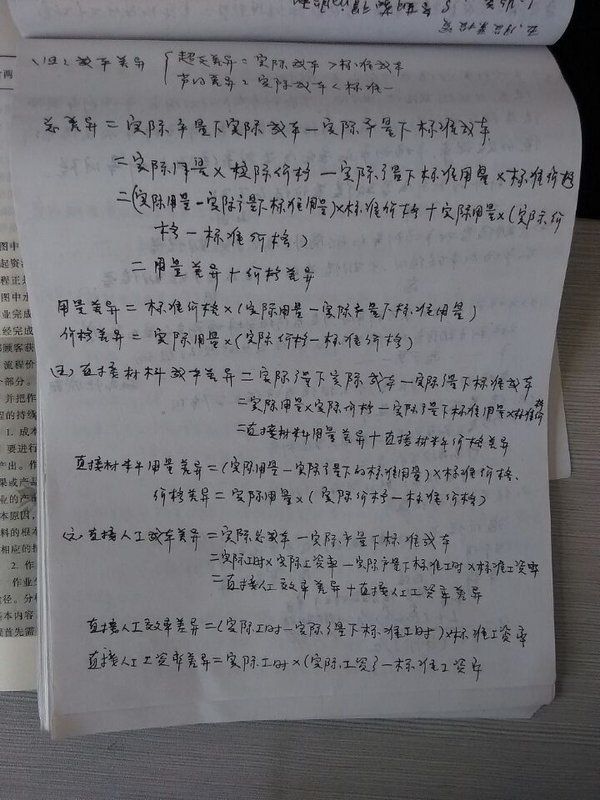 (四)成本差异 { 超支差异:实际成本 > 标准成本
节约差异:实际成本 < 标准~
总差异 = 实际产量下实际成本 — 实际产量下标准成本
= 实际用量 × 实际价格 — 实际产量下标准用量 × 标准价格
= (实际用量 — 实际产量下标准用量) × 标准价格 + 实际用量 × (实际价
格 — 标准价格)
= 用量差异 + 价格差异
用量差异 = 标准价格 × (实际用量 — 实际产量下标准用量)
价格差异 = 实际用量 × (实际价格 — 标准价格)
直接材料成本差异 = 实际产量下实际成本 — 实际产量下标准成本
= 实际用量 × 实际价格 — 实际产量下标准用量 × 标准价格
= 直接材料用量差异 + 直接材料价格差异
直接材料用量差异 = (实际用量 — 实际产量下的标准用量) × 标准价格.
价格差异 = 实际用量 × (实际价格 — 标准价格)
直接人工成本差异 = 实际总成本 — 实际产量下标准成本
= 实际工时 × 实际工资率 — 实际产量下标准工时 × 标准工资率
= 直接人工效率差异 + 直接人工工资率差异
直接人工效率差异 = (实际工时 — 实际产量下标准工时) × 标准工资率
直接人工工资率差异 = 实际工时 × (实际工资率 — 标准工资率
图中
起资
程正
图中
业完成
经完成
部顾客获
流程价
个部分。
并把作
程的持续
1. 成本
要进行
产出。作
果或产品
业的产
本原因,
料的根本
相应的指
2. 作
作业分
途径。分析
基本内容
程首先需